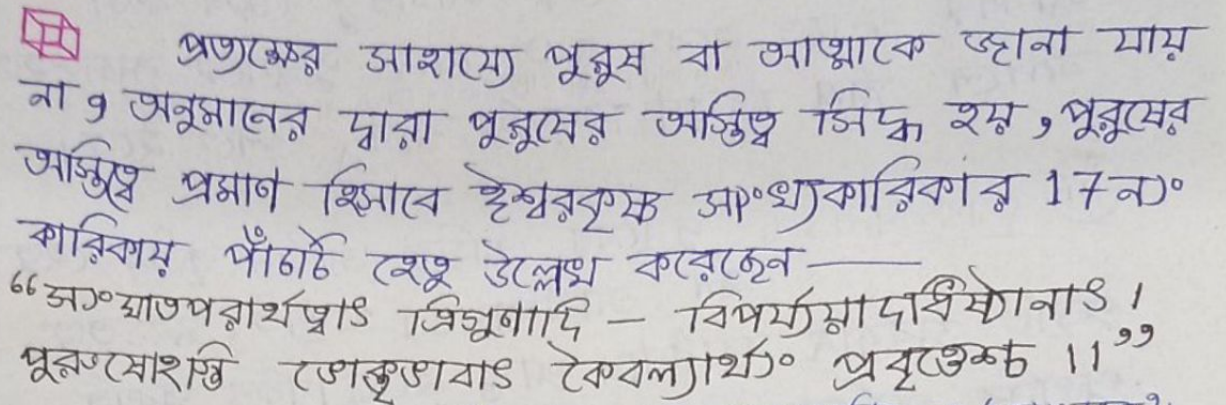 প্রত্যক্ষের সাহায্যে পুরুষ বা আত্মাকে জানা যায়
না, অনুমানের দ্বারা পুরুষের অস্তিত্ব সিদ্ধ হয়, পুরুষের
অস্তিত্বে প্রমাণ হিসাবে ঈশ্বরকৃষ্ণ সাংখ্যকারিকার 17 নং
কারিকায় পাঁচটি হেতু উল্লেখ করেছেন —
“সংঘাতপরার্থত্বাৎ ত্রিগুণাদি - বিপর্য্যয়াদধিষ্ঠানাৎ।
পুরুষোহস্তি ভোক্তৃভাবাৎ কৈবল্যার্থং প্রবৃত্তেশ্চ ।।”